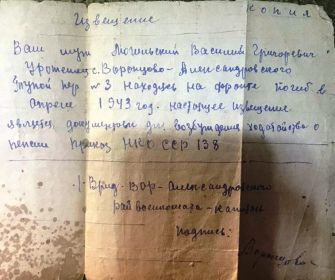 копия
Извещение
Ваш муж Могильский Василий Григоревич
Уроженец с. Воронцово-Александровского
пер №3 находясь на фронте погиб в
апреле 1943 год. настоящее извещение
является документом для возбуждения ходатайства о
пенсии приказ НКО СССР 138
Врид-Вор-Александровского
райвоенкомата-капитан
подпись: